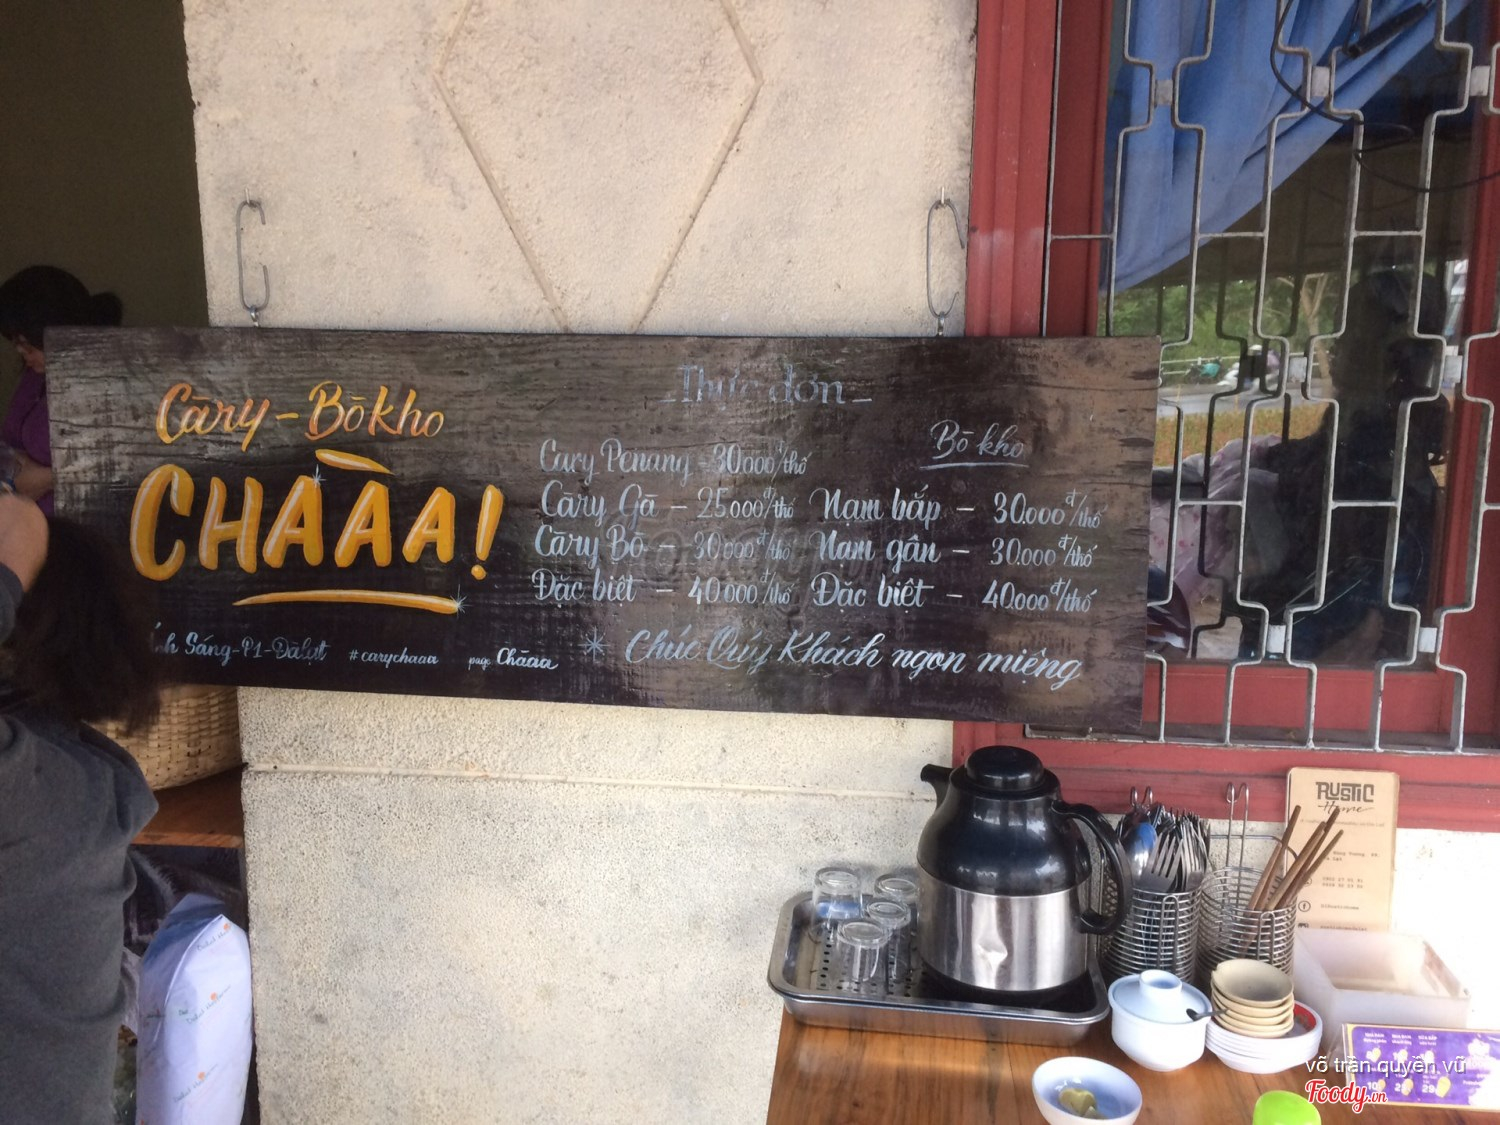 Cāry - Bō kho
CHÀÀA!
Thực đơn
Cary Penang - 30.000đ/thố
Cāry Gā - 25.000đ/thố
Cāry Bō - 30.000đ/thố
Đặc biệt - 40.000đ/thố
Bō kho
Nạm bắp - 30.000đ/thố
Nạm gân - 30.000đ/thố
Đặc biệt - 40.000đ/thố
Sáng-P1-Đàlạt #carychaaa page Chāaa
Chúc Quý Khách ngon miệng
RUSTIC
Home
võ trần quyền vũ
Foody.vn